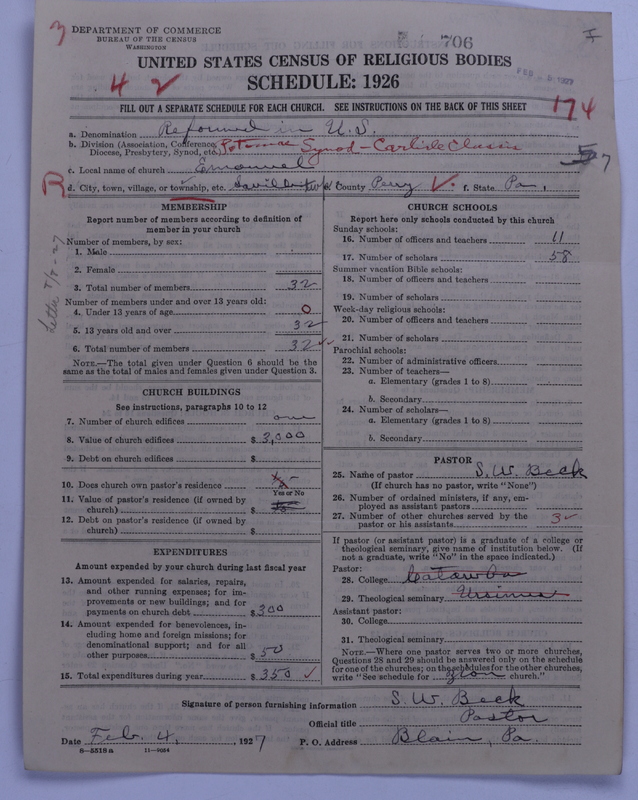 3 DEPARTMENT OF COMMERCE
BUREAU OF THE CENSUS
WASHINGTON
706
I
UNITED STATES CENSUS OF RELIGIOUS BODIES
FEB 5 1927
SCHEDULE: 1926
4 2
174
FILL OUT A SEPARATE SCHEDULE FOR EACH CHURCH. SEE INSTRUCTIONS ON THE BACK OF THIS SHEET
a. Denomination Reformed in U.S.
b. Division (Association, Conference, Diocese, Presbytery, Synod, etc.) Potomac Synod - Carlisle Classis
57
c. Local name of church Emanuel
d. City, town, village, or township, etc. e. County Perry f. State Pa.
Letter 7/7-27
MEMBERSHIP
Report number of members according to definition of
member in your church
Number of members, by sex:
1. Male
2. Female
3. Total number of members 32
Number of members under and over 13 years old:
4. Under 13 years of age 0
5. 13 years old and over 32
6. Total number of members 32
NOTE.—The total given under Question 6 should be the
same as the total of males and females given under Question 3.
CHURCH BUILDINGS
See instructions, paragraphs 10 to 12
7. Number of church edifices one
8. Value of church edifices $ 3,000
9. Debt on church edifices $
10. Does church own pastor's residence
Yes or No
11. Value of pastor's residence (if owned by
church) $
12. Debt on pastor's residence (if owned by
church) $
EXPENDITURES
Amount expended by your church during last fiscal year
13. Amount expended for salaries, repairs,
and other running expenses; for im-
provements or new buildings; and for
payments on church debt $ 300
14. Amount expended for benevolences, in-
cluding home and foreign missions; for
denominational support; and for all
other purposes $ 50
15. Total expenditures during year $ 350
CHURCH SCHOOLS
Report here only schools conducted by this church
Sunday schools:
16. Number of officers and teachers 11
17. Number of scholars 58
Summer vacation Bible schools:
18. Number of officers and teachers
19. Number of scholars
Week-day religious schools:
20. Number of officers and teachers
21. Number of scholars
Parochial schools:
22. Number of administrative officers
23. Number of teachers—
a. Elementary (grades 1 to 8)
b. Secondary
24. Number of scholars—
a. Elementary (grades 1 to 8)
b. Secondary
PASTOR
25. Name of pastor S. W. Beck
(If church has no pastor, write "None")
26. Number of ordained ministers, if any, em-
ployed as assistant pastors
27. Number of other churches served by the
pastor or his assistants 3
If pastor (or assistant pastor) is a graduate of a college or
theological seminary, give name of institution below. (If
not a graduate, write "No" in the space indicated.)
Pastor:
28. College Catawba
29. Theological seminary Ursinus
Assistant pastor:
30. College
31. Theological seminary
NOTE.—Where one pastor serves two or more churches,
Questions 28 and 29 should be answered only on the schedule
for one of the churches; on the schedules for the other churches,
write "See schedule for Zion church."
Signature of person furnishing information S. W. Beck
Official title Pastor
Date Feb. 4, 1927 P. O. Address Blain, Pa.
8—5518 a 11—9024